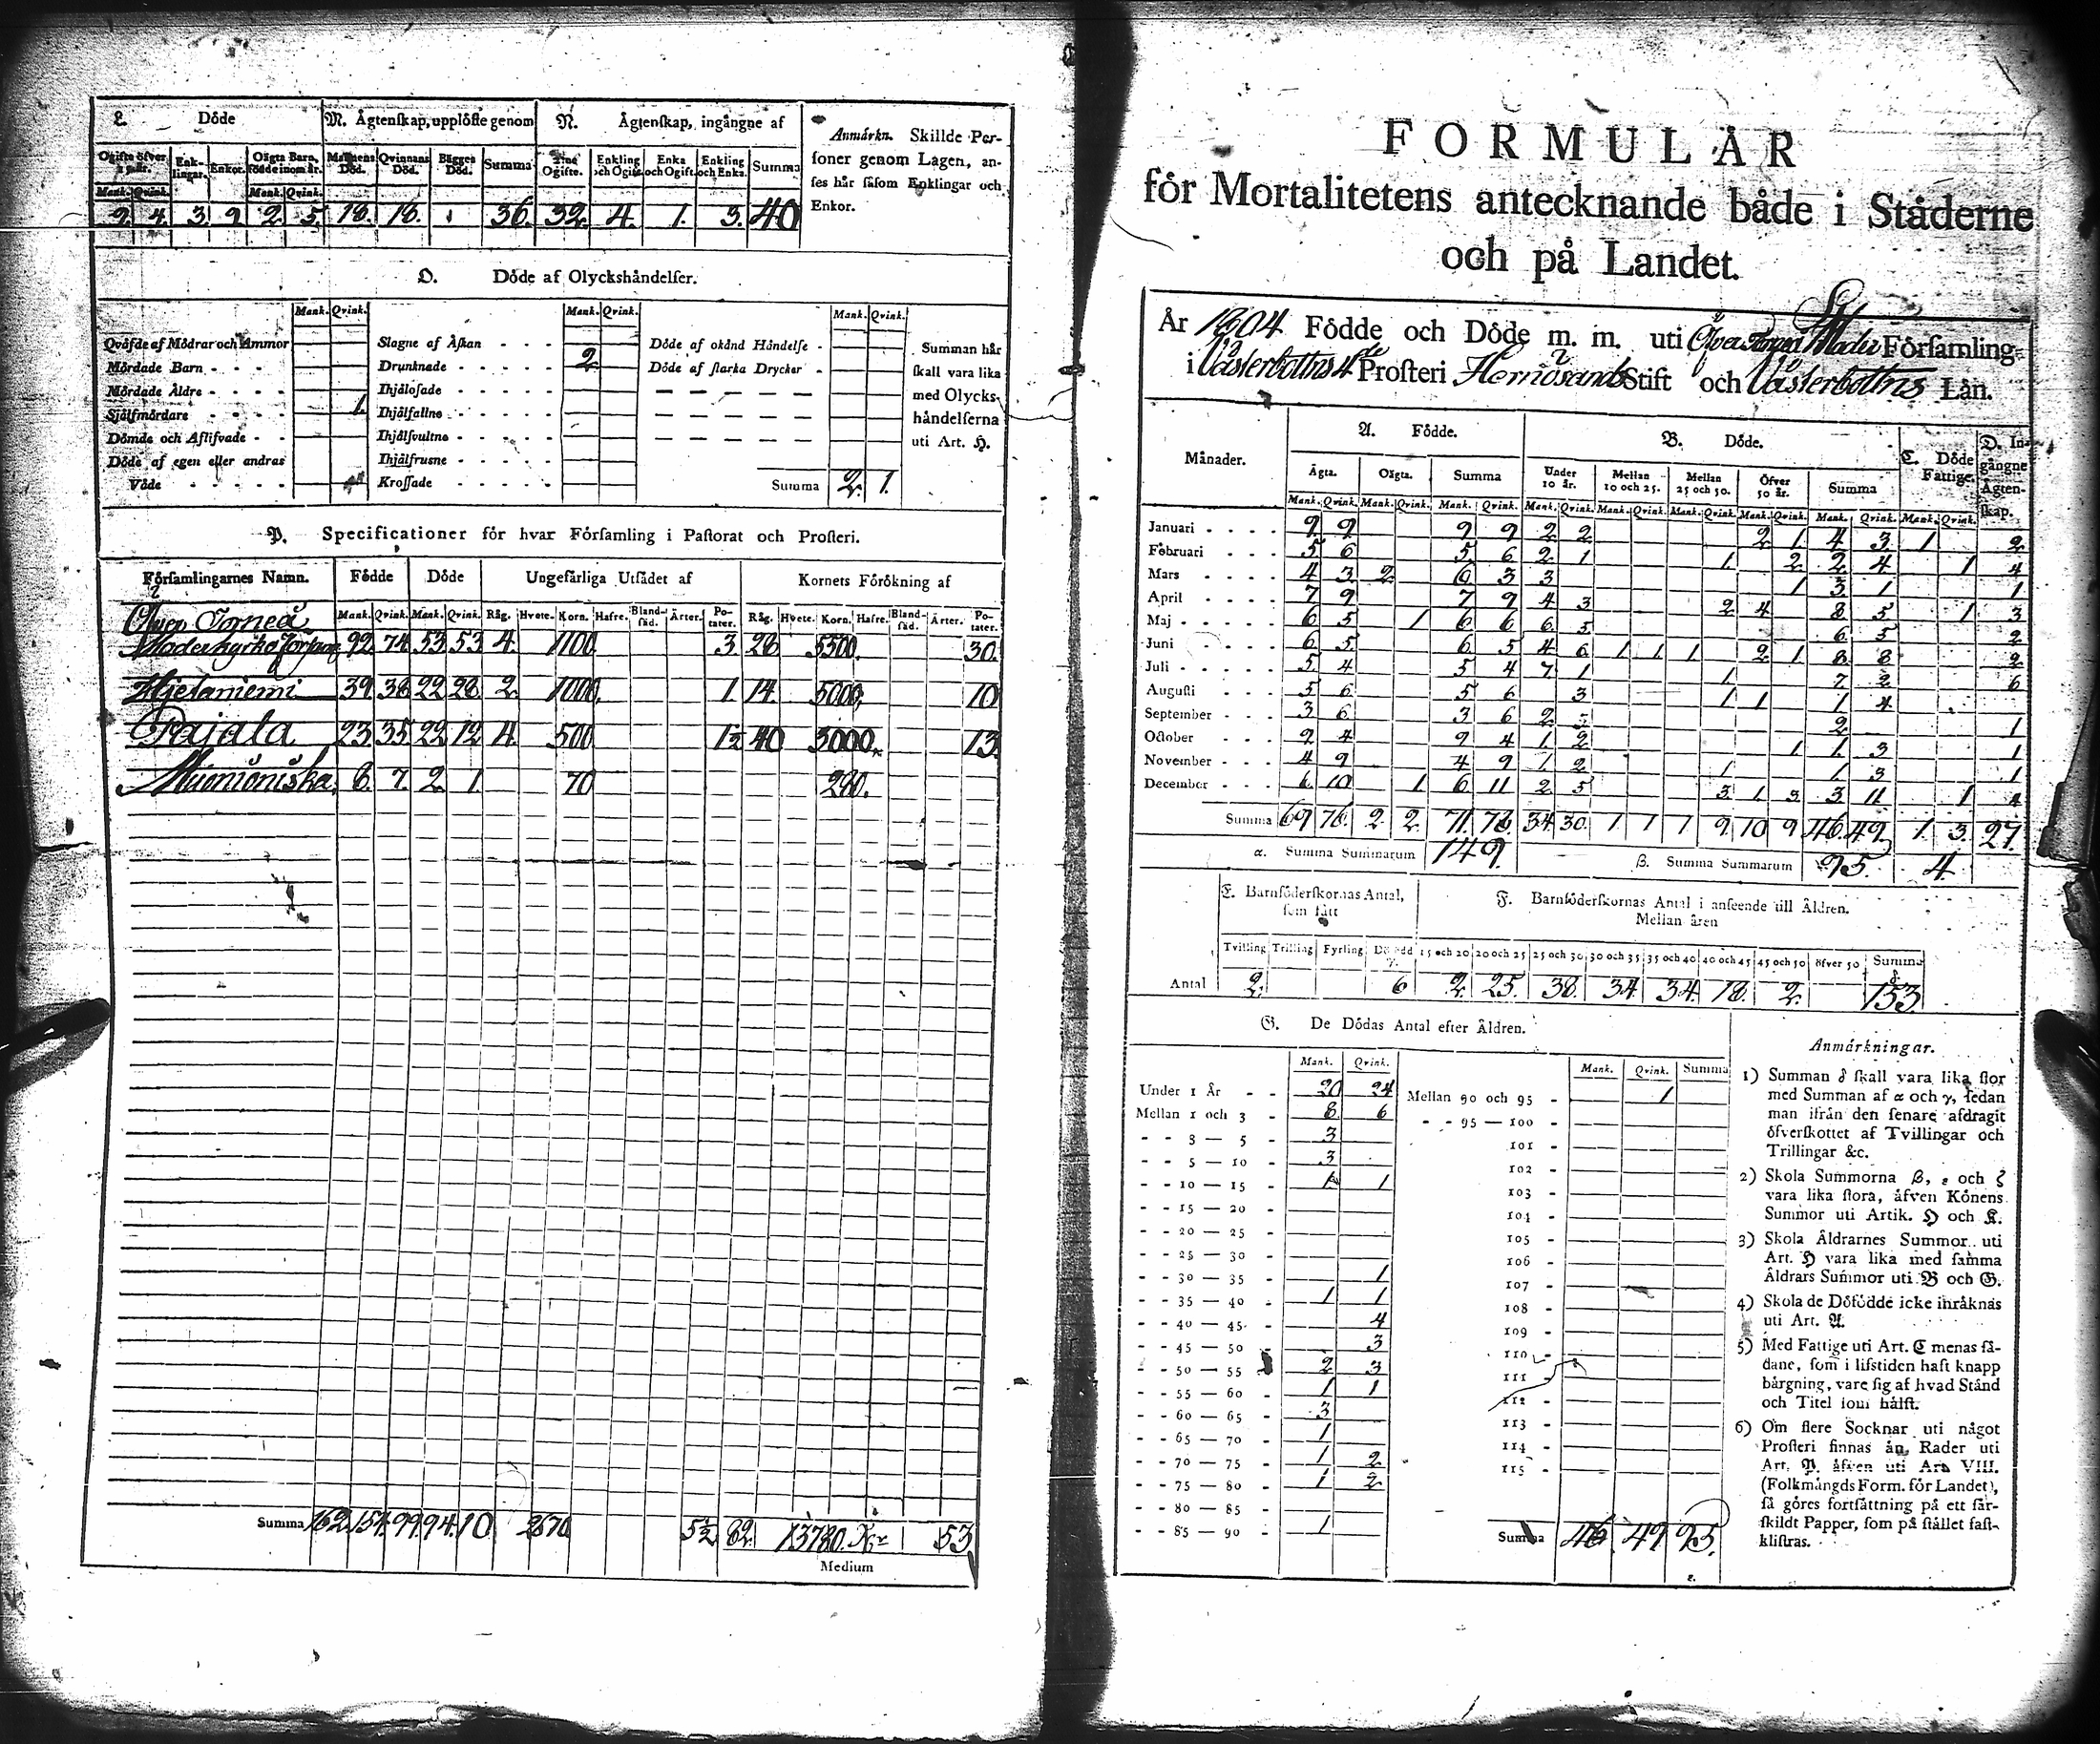 L. Döde
M. Ågtenſkap, upplöſte genom
N. Ågtenſkap, ingångne af
Anmärkn. Skillde Per-
ſoner genom Lagen, an-
ſes här ſåſom Enklingar och
Enkor.
Ogifte öfver
Enk-
lingar.
Enkor.
Oägta Barn,
födde inom år.
Mannens
Död.
Qvinnans
Död.
Bägges
Död.
Summa
Ogifte.
Enkling
och Ogift.
Enka
och Ogift.
Enkling
och Enka.
Summa
Mank. Qvink. Mank. Qvink.
2 4. 3. 9 2. 5. 18. 18. 36. 32. 4. 1. 3. 40
O. Döde af Olyckshändelſer.
Mank. Qvink. Mank. Qvink. Mank. Qvink.
Qväfde af Mödrar och Ammor
Mördade Barn
Mördade Äldre
Sjålfmördare 1.
Dömde och Aflifvade
Döde af egen eller andras
Våde
Slagne af Åſkan
Drunknade 2
Ihjäloſade
Ihjälfallne
Ihjälſvultne
Ihjälfrusne
Kroſſade
Döde af okänd Händelſe
Döde af ſtarka Drycker
Summa 2. 1.
Summan här
ſkall vara lika
med Olycks-
händelſerna
uti Art. H.
P. Specificationer för hvar Förſamling i Paſtorat och Proſteri.
Förſamlingarnes Namn. Födde Döde Ungefärliga Utſädet af Kornets Förökning af
Mank. Qvink. Mank. Qvink. Råg. Hvete. Korn. Hafre. Bland-ſäd. Ärter. Po-tater. Råg. Hvete. Korn. Hafre. Bland-ſäd. Ärter. Po-tater.
Öfver Torneå
Moderkyrko 92 74 53 53 4. 1100 3 28 5500. 30.
Hjetaniemi 39. 38 22 28 2. 1000. 1. 14. 5000. 10
Pajala 23. 35. 22 12 4. 500 1½ 40 3000. 13.
Muonioniska. 8. 7. 2. 1. 70 280.
Summa 162. 154. 99. 94. 10. 2670 5½ 82. 13780. Kr 53
Medium
FORMULÄR
för Mortalitetens antecknande både i Städerne
och på Landet.
År 1804 Födde och Döde m. m. uti Öfver Torneå Moder Förſamling
i Västerbottns 4de Proſteri Hernösands Stift och Västerbottns Län.
Månader.
A. Födde.
B. Döde.
C. Döde
Fattige.
D. In-
gångne
Ägten-
ſkap.
Ägta. Oägta. Summa
Under
10 år.
Mellan
10 och 25.
Mellan
25 och 50.
Öfver
50 år.
Summa
Mank. Qvink. Mank. Qvink. Mank. Qvink. Mank. Qvink. Mank. Qvink. Mank. Qvink. Mank. Qvink. Mank. Qvink. Mank. Qvink.
Januari 9 9 9 9 2 2 2 1 4 3 1 2
Februari 5 6 5 6 2 1 1 2 2 4 1 4
Mars 4 3 2 6 3 3 1 3 1 1
April 7 9 7 9 4 3 2 4 8 5 1 3
Maj 6 5 1 6 6 6 5 6 5 2
Juni 6 5 6 5 4 6 1 1 1 2 1 8 8 2
Juli 5 4 5 4 7 1 1 7 2 6
Auguſti 5 6 5 6 3 1 1 1 4
September 3 6 3 6 2 2 1
October 9 4 9 4 1 2 1 1 3 1
November 4 9 4 9 1 2 1 1 3 1
December 6 10 1 6 11 2 5 3 1 3 3 11 1 4
Summa 69 76. 2 2. 71. 78. 34. 30. 1 1 1 9 10 9 46. 49. 1. 3. 27.
α. Summa Summarum 149.
β. Summa Summarum 95. 4.
E. Barnföderſkornas Antal,
ſom fått
F. Barnföderſkornas Antal i anſeende till Åldren.
Mellan åren
Tvilling Trilling Fyrling Dödfödd 15 och 20 20 och 25 25 och 30 30 och 35 35 och 40 40 och 45 45 och 50 öfver 50 Summa
Antal 2. 6 2. 25. 38. 34. 34. 18. 2. 153.
G. De Dödas Antal efter Åldren.
Mank. Qvink. Mank. Qvink. Summa
Under 1 År 20 24
Mellan 1 och 3 8 6
3 — 5 3
5 — 10 3
10 — 15 1 1
15 — 20
20 — 25
25 — 30
30 — 35 1
35 — 40 1 1
40 — 45 4
45 — 50 3
50 — 55 2 3
55 — 60 1 1
60 — 65 3
65 — 70 1
70 — 75 1 2
75 — 80 1 2
80 — 85
85 — 90 1
Mellan 90 och 95 1
95 — 100
101
102
103
104
105
106
107
108
109
110
111
112
113
114
115
Summa 46. 49 95.
ε.
Anmärkningar.
1) Summan δ ſkall vara lika ſtor
med Summan af α och γ, ſedan
man ifrån den ſenare afdragit
öfverſkottet af Tvillingar och
Trillingar &c.
2) Skola Summorna β, ε och ζ
vara lika ſtora, äfven Könens
Summor uti Artik. H och K.
3) Skola Åldrarnes Summor uti
Art. H vara lika med ſamma
Åldrars Summor uti B och G.
4) Skola de Döfödde icke inräknas
uti Art. A.
5) Med Fattige uti Art. C menas ſå-
dane, ſom i lifstiden haft knapp
bärgning, vare ſig af hvad Stånd
och Titel ſom hälſt.
6) Om flere Socknar uti något
Proſteri finnas än Rader uti
Art. P. äfven uti Art. VIII.
(Folkmängds Form. för Landet),
ſå göres fortſättning på ett ſär-
ſkildt Papper, ſom på ſtället faſt-
kliſtras.